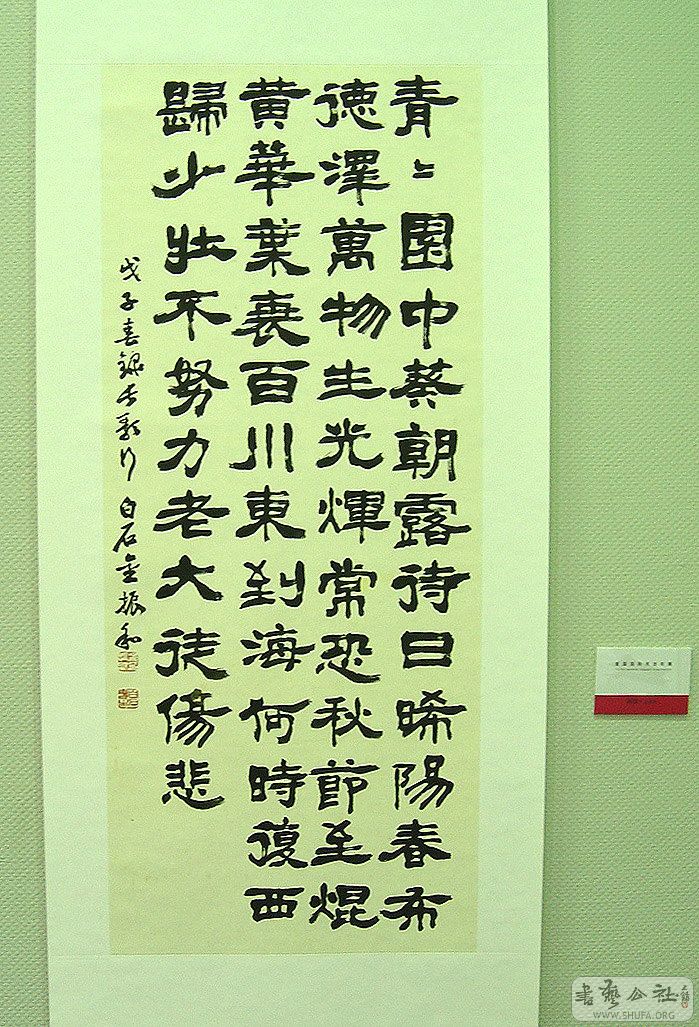 青〻園中葵朝露待日晞陽春布
德澤萬物生光煇常恐秋節至焜
黄華葉衰百川東到海何時復西
歸少壯不努力老大徒傷悲
戊子春録長歌行 白石金振和
書藝公社
WWW.SHUFA.ORG